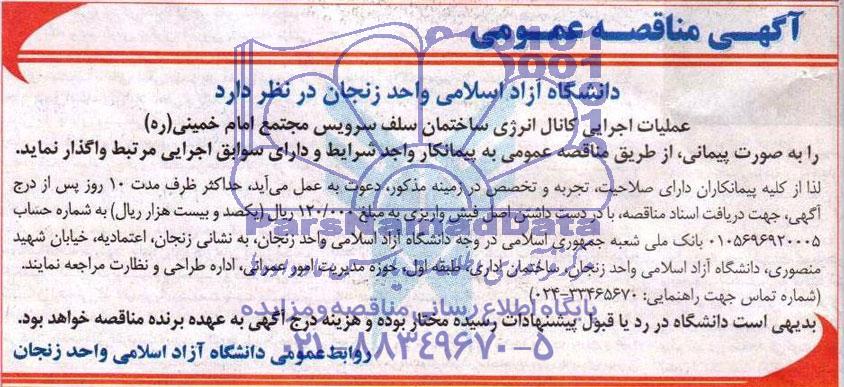 آگهـی مناقصـه عمـومی
دانشگاه آزاد اسلامی واحد زنجان در نظر دارد
عملیات اجرایی کانال انرژی ساختمان سلف سرویس مجتمع امام خمینی(ره)
را به صورت پیمانی، از طریق مناقصه عمومی به پیمانکار واجد شرایط و دارای سوابق اجرایی مرتبط واگذار نماید.
لذا از کلیه پیمانکاران دارای صلاحیت، تجربه و تخصص در زمینه مذکور، دعوت به عمل می‌آید، حداکثر ظرف مدت ۱۰ روز پس از درج
آگهی، جهت دریافت اسناد مناقصه، با در دست داشتن اصل فیش واریزی به مبلغ ۱۲۰/۰۰۰ ریال (یکصد و بیست هزار ریال) به شماره حساب
۰۱۰۵۶۹۶۹۲۰۰۰۵ بانک ملی شعبه جمهوری اسلامی در وجه دانشگاه آزاد اسلامی واحد زنجان، به نشانی زنجان، اعتمادیه، خیابان شهید
منصوری، دانشگاه آزاد اسلامی واحد زنجان، ساختمان اداری، طبقه اول، حوزه مدیریت امور عمرانی، اداره طراحی و نظارت مراجعه نمایند.
(شماره تماس جهت راهنمایی: ۳۳۴۶۵۶۷۰-۰۲۴)
بدیهی است دانشگاه در رد یا قبول پیشنهادات رسیده مختار بوده و هزینه درج آگهی به عهده برنده مناقصه خواهد بود.
روابط عمومی دانشگاه آزاد اسلامی واحد زنجان
ParsNamadData
پایگاه اطلاع رسانی مناقصه و مزایده
۰۲۱-۸۸۳۴۹۶۷۰-۵